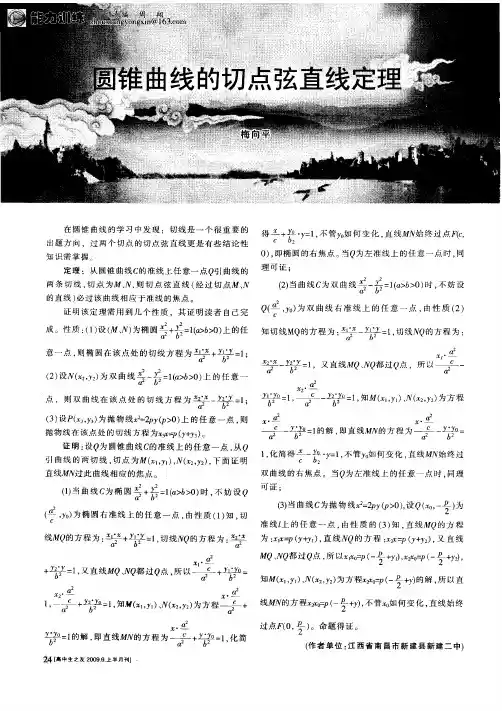 能力训练
圆锥曲线的切点弦直线定理
梅向平
在圆锥曲线的学习中发现：切线是一个很重要的
出题方向，过两个切点的切点弦直线更是有些结论性
知识需掌握。
定理：从圆锥曲线C的准线上任意一点Q引曲线的
两条切线，切点为M、N，则切点弦直线(经过切点M、N
的直线)必过该曲线相应于准线的焦点。
证明该定理需用到几个性质，其证明读者自己完
成。性质：(1)设(M、N)为椭圆x²/a²+y²/b²=1(a>b>0)上的任
意一点，则椭圆在该点处的切线方程为x₁·x/a²+y₁·y/b²=1；
(2)设N(x₂,y₂)为双曲线x²/a²-y²/b²=1(a>b>0)上的任意一
点，则双曲线在该点处的切线方程为x₂·x/a²-y₂·y/b²=1；
(3)设P(x₃,y₃)为抛物线x²=2py(p>0)上的任意一点，则
抛物线在该点处的切线方程为x₃x=p(y+y₃)。
证明：设Q为圆锥曲线C的准线上的任意一点，从Q
引曲线的两切线，切点为M(x₁,y₁)、N(x₂,y₂)，下面证明
直线MN过此曲线相应的焦点。
(1)当曲线C为椭圆x²/a²+y²/b²=1(a>b>0)时，不妨设Q
(a²/c,y₀)为椭圆右准线上的任意一点，由性质(1)知，切
线MQ的方程为：x₁·x/a²+y₁·y/b²=1，切线NQ的方程为：x₂·x/a²
+y₂·y/b²=1，又直线MQ、NQ都过Q点，所以x₁·(a²/c)/a²+y₁·y₀/b²=
1，x₂·(a²/c)/a²+y₂·y₀/b²=1，知M(x₁,y₁)、N(x₂,y₂)为方程x·(a²/c)/a²+
y·y₀/b²=1的解，即直线MN的方程为x·(a²/c)/a²+y·y₀/b²=1，化简
得x/c+y₀/b₂·y=1，不管y₀如何变化，直线MN始终过点F(c,
0)，即椭圆的右焦点。当Q为左准线上的任意一点时，同
理可证；
(2)当曲线C为双曲线x²/a²-y²/b²=1(a>b>0)时，不妨设
Q(a²/c,y₀)为双曲线右准线上的任意一点，由性质(2)
知切线MQ的方程为：x₁·x/a²-y₁·y/b²=1，切线NQ的方程为：
x₂·x/a²-y₂·y/b²=1，又直线MQ、NQ都过Q点，所以x₁·(a²/c)/a²-
y₁·y₀/b²=1，x₂·(a²/c)/a²-y₂·y₀/b²=1，知M(x₁,y₁)、N(x₂,y₂)为方程
x·(a²/c)/a²-y·y₀/b²=1的解，即直线MN的方程为x·(a²/c)/a²-y·y₀/b²=
1，化简得x/c-y₀/b₂·y=1，不管y₀如何变化，直线MN始终过
双曲线的右焦点，当Q为左准线上的任意一点时，同理
可证；
(3)当曲线C为抛物线x²=2py(p>0)，设Q(x₀,-p/2)为
准线l上的任意一点，由性质的(3)知，直线MQ的方程
为：x₁x=p(y+y₁)，直线NQ的方程：x₂x=p(y+y₂)，又直线
MQ、NQ都过Q点，所以x₁x₀=p(-p/2+y₁)，x₂x₀=p(-p/2+y₂)，
知M(x₁,y₁)、N(x₂,y₂)为方程x₃x₀=p(-p/2+y)的解，所以直
线MN的方程x₃x₀=p(-p/2+y)，不管x₀如何变化，直线始终
过点F(0,p/2)。命题得证。
(作者单位：江西省南昌市新建县新建二中)
24 [高中生之友 2009.6.上半月刊]